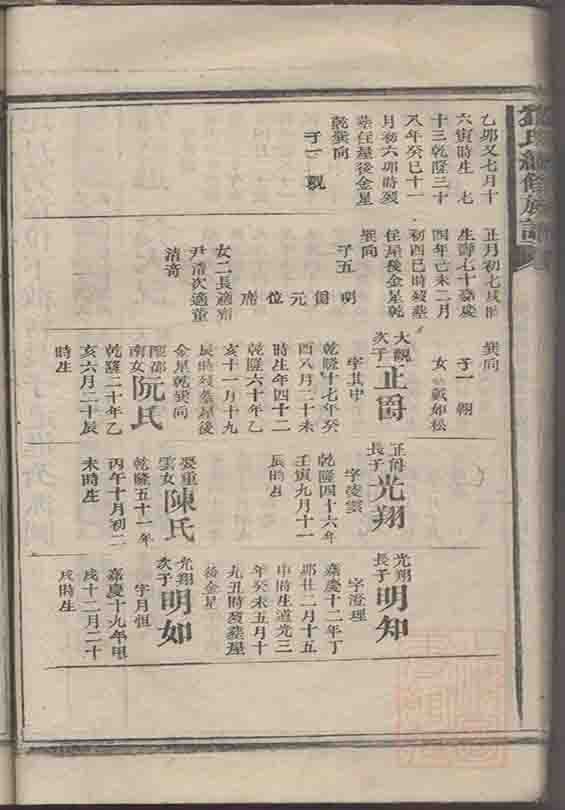 氏續修族譜
乙卯又七月十
六寅時生 七
十三乾隆三十
八年癸巳十一
月初六卯時歿
葬住屋後金星
乾巽向
子一 觀
正月初七戌時
生壽七十嘉慶
四年己未二月
初四巳時歿葬
住屋後金星乾
巽向
子五
位
女二長適
尹清次適童
清奇
巽向
子一 翔
女 適戴如松
大觀
次子
正爵
字其中
乾隆十七年癸
酉八月二十未
時生年四十二
乾隆六十年乙
亥十一月十九
辰時歿葬屋後
金星乾巽向
南女
阮氏
乾隆二十年乙
亥六月二十辰
時生
正爵
長子
光翔
字凌雲
乾隆四十六年
壬寅九月十一
辰時生
娶重
雲女
陳氏
乾隆五十一年
丙午十月初二
未時生
光翔
長子
明知
字澄理
嘉慶十二年丁
卯廿二月十五
申時生道光三
年癸未五月十
九丑時歿葬屋
後金星
光翔
次子
明如
字月恒
嘉慶十九年甲
戌十二月二十
戌時生